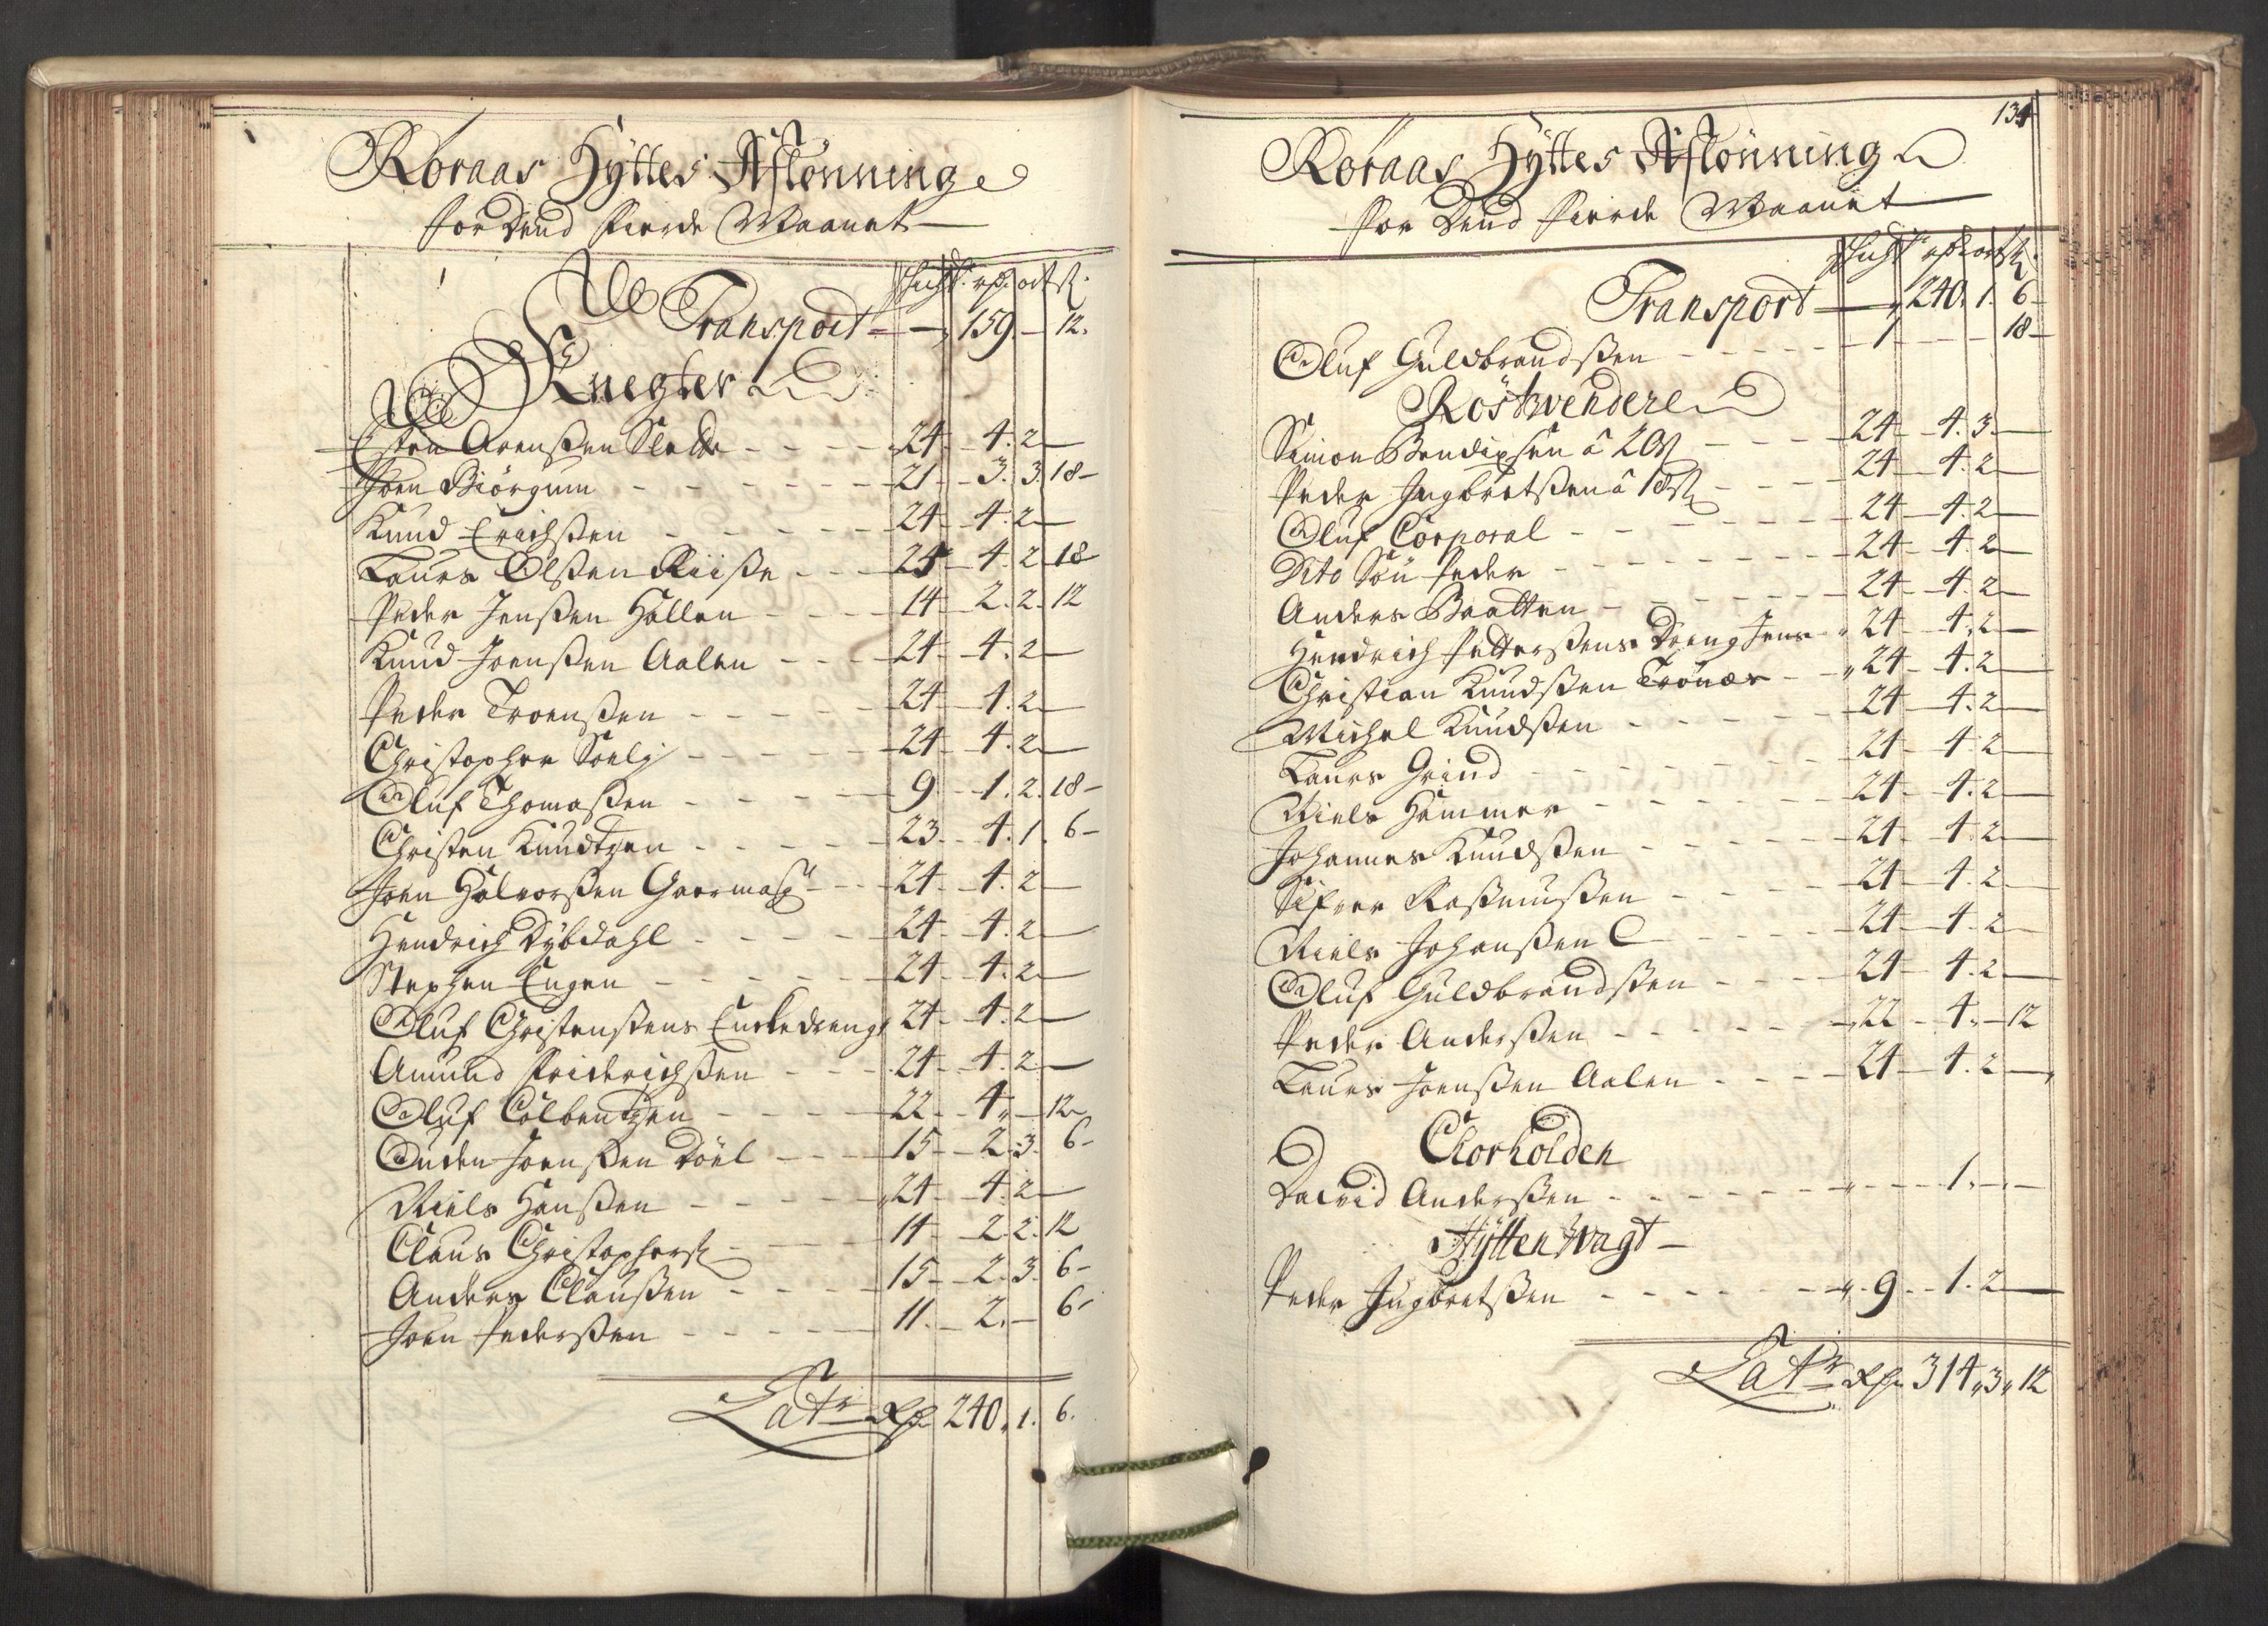 Röraas Hÿttes Aflönning
for Dend fierde Maanet
schicht. rd. ort sk.
Transport — „ 159. — 12.
Knegter
Esten Arensßen 24 - 4. 2 —
Joen Biörgum 21 - 3. 3. 18 -
Knud Erichsßen 24 - 4. 2 —
Laurs Olsßen Riise 25 - 4. 2 18 -
Peder Jensßen Hallen 14 - 2. 2. 12
Knud Joensßen Aalen 24 - 4. 2 —
Peder Troensßen 24 - 4. 2 —
Christopher 24 - 4. 2 —
Oluf Thomasßen 9 - 1. 2. 18 -
Christen Knudtzen 23 - 4. 1. 6 -
Joen Halvorsßen Gaarmager 24 - 4. 2 —
Hendrich Dÿbdahl 24 - 4. 2 —
Stephen Engen 24 - 4. 2 —
Oluf Christensßens Enckedreng 24 - 4. 2 —
Amund Friderichsßen 24 - 4. 2 —
Oluf Colbentzen 22 - 4 „ — 12
Ouden Joensßen Döel 15 - 2. 3. 6 -
Niels Hansßen 24 - 4. 2 —
Claus Christophers. 14 - 2. 2. 12
Anders Clausßen 15 - 2. 3. 6 -
Joen Pedersßen 11. - 2. — 6 -
Lat.r Rd. 240. 1. 6.
134
Röraas Hÿttes Aflönning
for Dend fierde Maanet
schicht. rd. ort sk.
Transport — „ 240. 1. 6 -
Oluf Guldbrandsßen 1 - - - 18 -
Röstvendere
Simon Bendixsen â 20 sk 24 - 4. 3. —
Peder Ingbretsßen â 18 sk 24 - 4. 2 —
Oluf Corporal 24 - 4. 2 —
Dito Sön Peder 24 - 4. 2 —
Anders Baatten 24 - 4. 2 —
Hendrich Pettersßens Dreng Jens 24 - 4. 2 —
Christian Knudsßen Trönæs 24 - 4. 2 —
Michel Knudsßen 24 - 4. 2 —
Laurs Grind 24 - 4. 2 —
Niels Hammer 24 - 4. 2 —
Johannes Knudsßen 24 - 4. 2 —
Sifver Rasmusßen 24 - 4. 2 —
Niels Johansßen 24 - 4. 2 —
Oluf Guldbrandsßen 24 - 4. 2 —
Peder Andersßen 22 - 4. — 12
Laurs Joensßen Aalen 24 - 4. 2 —
Chorholden
David Andersßen - - - 1. - —
Hÿtten Wagt —
Peder Ingbretsßen 9 - 1. 2 —
Lat.r Rd. 314 „ 3 „ 12